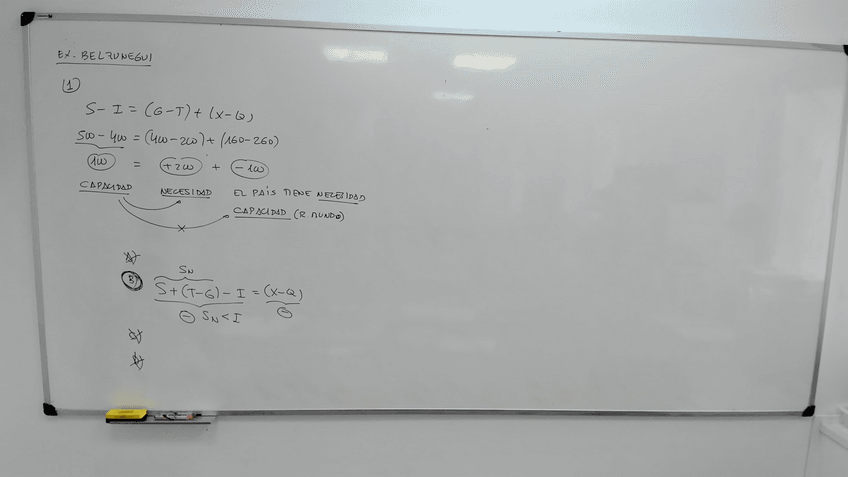 EX. BELZUNEGUI
(1)
S - I = (G-T) + (X-Q)
500 - 400 = (400-200) + (160-260)
100 = +200 + -100
CAPACIDAD NECESIDAD EL PAÍS TIENE NECESIDAD
CAPACIDAD (R. MUNDO)
A)
SN
B) S+(T-G)-I = (X-Q)
- SN < I -
C)
D)